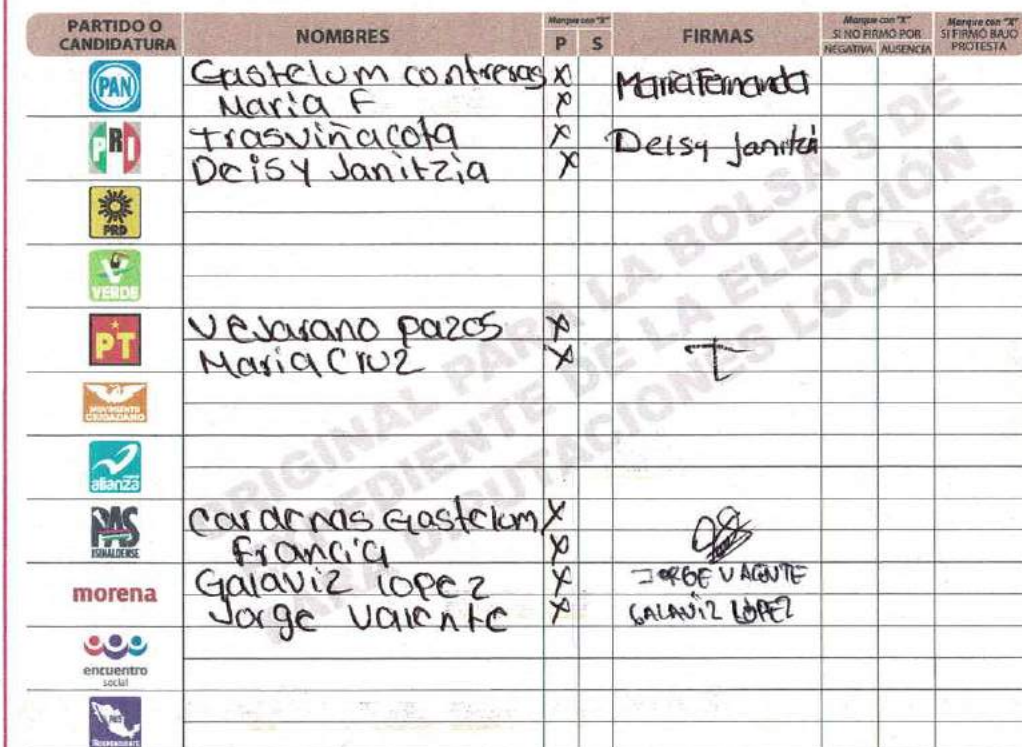 PARTIDO O CANDIDATURA
NOMBRES
Marque con "X"
P S
FIRMAS
Marque con "X" SI NO FIRMÓ POR
NEGATIVA AUSENCIA
Marque con "X" SI FIRMÓ BAJO PROTESTA
PAN
Gastelum contreras X
Maria F X
Maria Fernanda
PRI
trasviña cota X
Deisy Janitzia X
Deisy Janitzi
PRD
VERDE
PT
Vejarano pazos X
Maria Cruz X
MOVIMIENTO CIUDADANO
alianza
PAS
SINALOENSE
Cardenas Gastelum X
Francia X
morena
Galaviz lopez X
Jorge Valente X
JORGE VALENTE
GALAVIZ LÓPEZ
encuentro
social
PAIS
INDEPENDIENTE
ORIGINAL PARA LA BOLSA 5 DE
EXPEDIENTE DE LA ELECCIÓN
DIPUTACIONES LOCALES